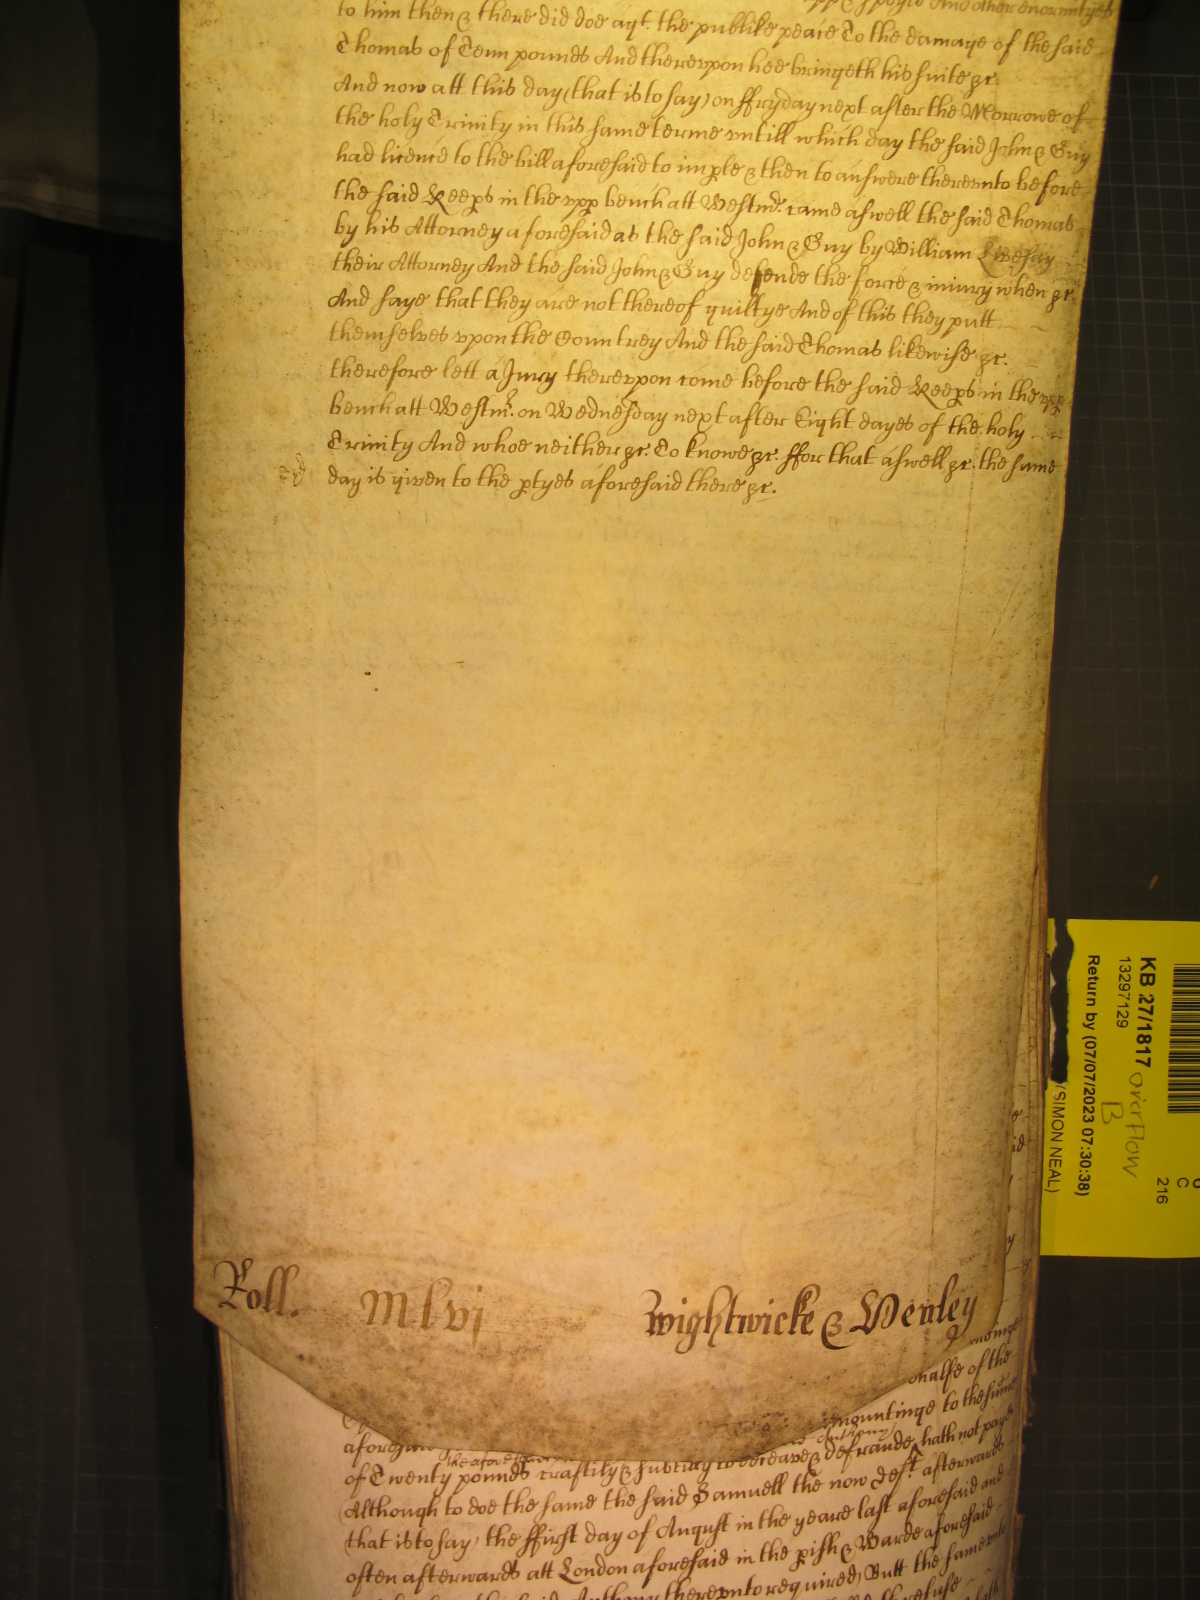 And other enormityes
to him then & there did doe agt. the publike peace To the damage of the said
Thomas of Tenn pounds And therevpon hee bringeth his suite &c.
And now att this day (that is to say) on ffryday next after the Morrowe of
the holy Trinity in this same terme vntill which day the said John & Guy
had licence to the bill aforesaid to imple & then to answere therevnto before
the said Keeps in the vpp bench att Westmr. came aswell the said Thomas
by his Attorney aforesaid as the said John & Guy by William Livesay
their Attorney And the said John & Guy defende the force & iniury when &c.
And saye that they are not thereof guiltye And of this they putt
themselves vpon the Countrey And the said Thomas likewise &c.
therefore lett a Jury therevpon come before the said Keeps in the vpp
bench att Westmr. on Wednesday next after Eight dayes of the holy
Trinity And whoe neither &c. To knowe &c. ffor that aswell &c. the same
day is given to the ptyes aforesaid there &c.
Roll. Mlvj Wightwicke & Wenley
halfe of the
mountinge to the sume
of Twenty pounds craftily & subtily to deceave & defraude hath not payd
Although to doe the same the said Samuell the now deft afterwards
that is to say, the ffirst day of August in the yeare last aforesaid and
often afterwards att London aforesaid in the pish & Warde aforesaid
Anthony therevnto required, Butt the same
refuse
KB 27/1817
13297129
Return by (07/07/2023 07:30:38)
(SIMON NEAL)
overflow
B
C
216